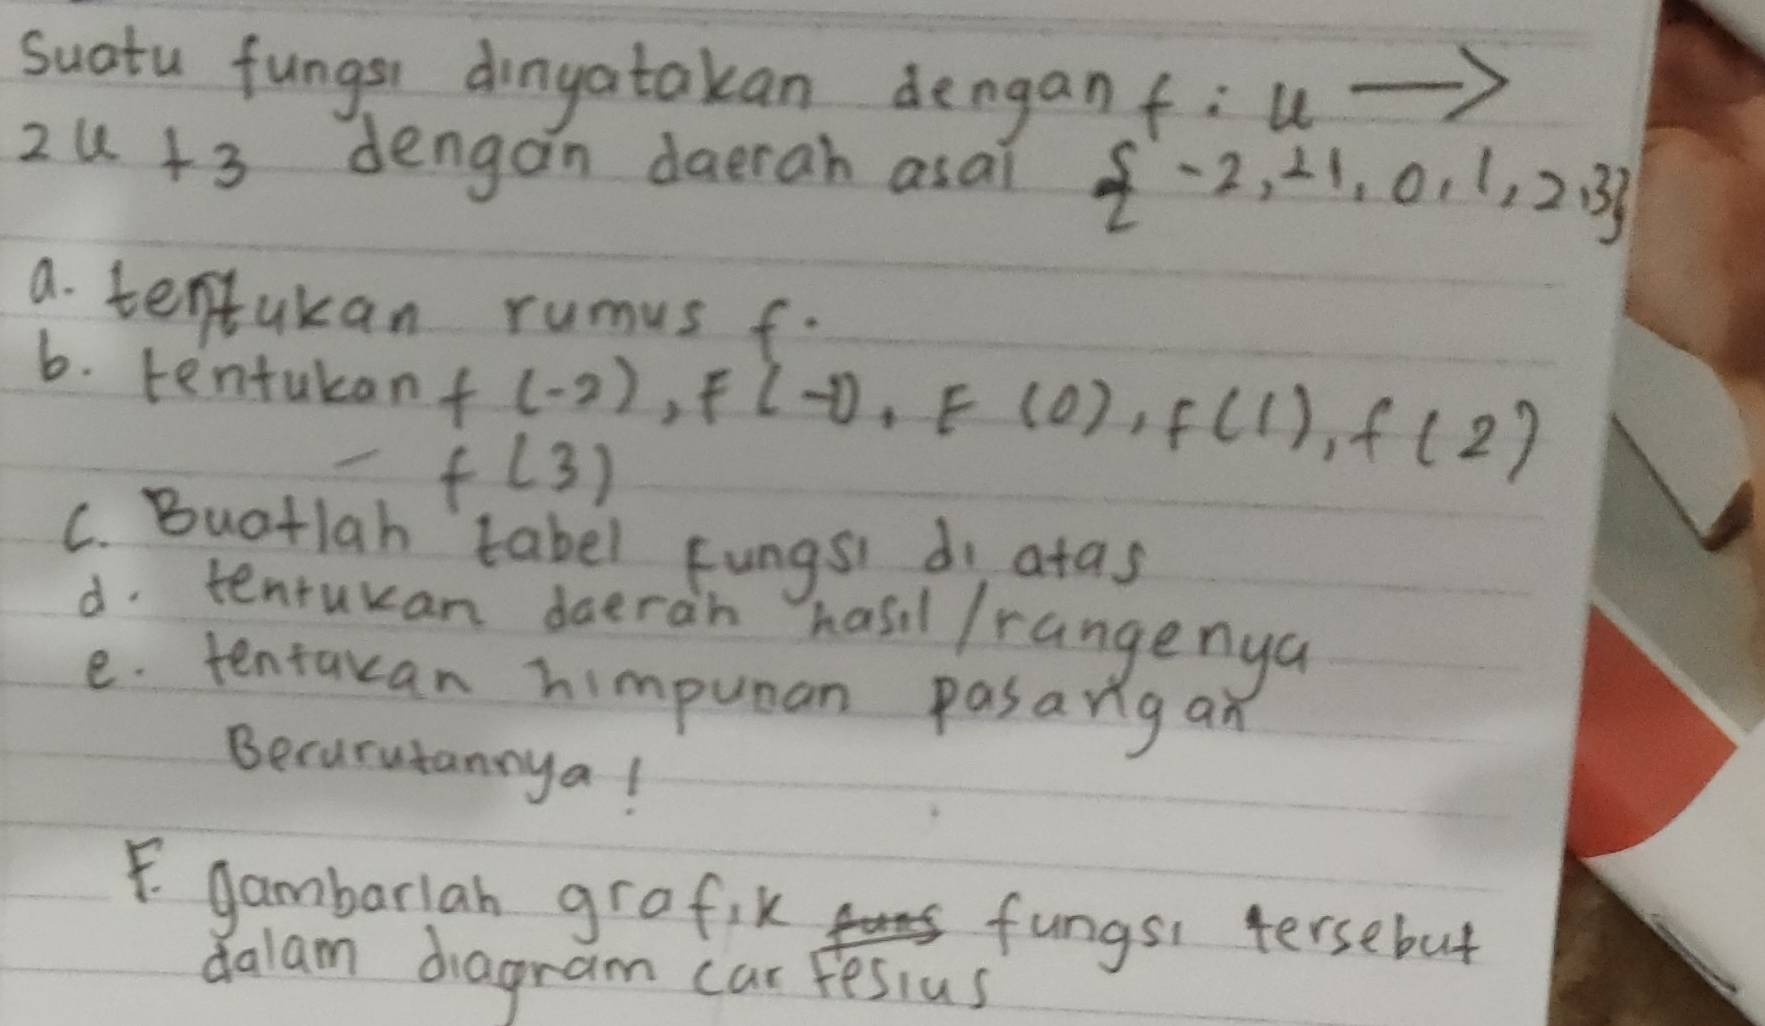 Suatu fungsi dinyatakan dengan f : u →
2u + 3 dengan daerah asal { -2, -1, 0, 1, 2, 3}
a. tentukan rumus f.
b. tentukan f (-2), F (-1), F (0), f(1), f (2)
- f (3)
C. Buatlah tabel Fungsi di atas
d. tentukan daerah hasil / rangenya
e. tentukan himpunan pasangan
Berurutannya !
F. gambarlah grafik fungsi tersebut
dalam diagram cartesius